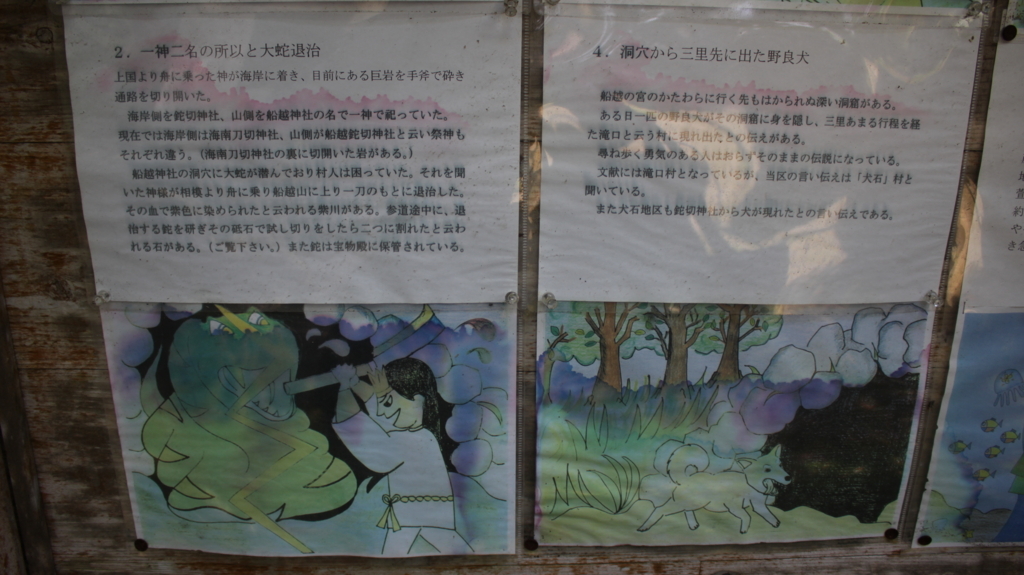 2．一神二名の所以と大蛇退治
上国より舟に乗った神が海岸に着き、目前にある巨岩を手斧で砕き
通路を切り開いた。
海岸側を鉈切神社、山側を船越神社の名で一神で祀っていた。
現在では海岸側は海南刀切神社、山側が船越鉈切神社と云い祭神も
それぞれ違う。（海南刀切神社の裏に切開いた岩がある。）
船越神社の洞穴に大蛇が潜んでおり村人は困っていた。それを聞
いた神様が相模より舟に乗り船越山に上り一刀のもとに退治した。
その血で紫色に染められたと云われる紫川がある。参道途中に、退
治する鉈を研ぎその砥石で試し切りをしたら二つに割れたと云わ
れる石がある。（ご覧下さい。）また鉈は宝物殿に保管されている。
4．洞穴から三里先に出た野良犬
船越の宮のかたわらに行く先もはかられぬ深い洞窟がある。
ある日一匹の野良犬がその洞窟に身を隠し、三里あまる行程を経
た滝口と云う村に現れ出たとの伝えがある。
尋ね歩く勇気のある人はおらずそのままの伝説になっている。
文献には滝口村となっているが、当区の言い伝えは「犬石」村と
聞いている。
また犬石地区も鉈切神社から犬が現れたとの言い伝えである。